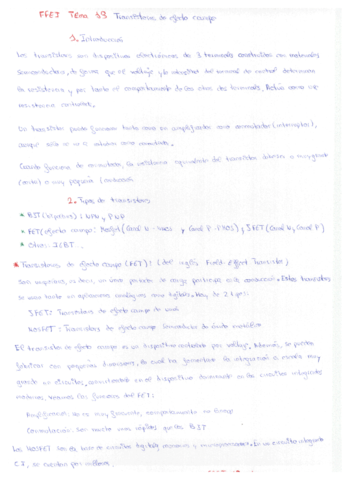 FFEI Tema 19 Transistores de efecto campo
1. Introducción
Los transistores son dispositivos electrónicos de 3 terminales construidos con materiales
semiconductores, de forma que el voltaje y/o intensidad del terminal de control determinan
la resistencia y por tanto el comportamiento de los otros dos terminales. Actúa como
resistencia controlada.
Un transistor puede funcionar tanto como un amplificador como conmutador (interruptor),
aunque solo se va a estudiar como conmutador.
Cuando funciona de conmutador, la resistencia equivalente del transistor es muy grande
(corte) o muy pequeña
2. Tipos de transistores
* BJT (bipolares): NPN y PNP
* FET (efecto campo): Mosfet (Canal N - NMOS y Canal P - PMOS) y JFET (Canal N, Canal P)
* Otros: IGBT...
* Transistores de efecto campo (FET): (del inglés Field-Effect Transistor)
Son unipolares, es decir, un único portador de carga participa en la conducción. Estos transistores
se usan tanto en aplicaciones analógicas como digitales, hay de 2 tipos:
JFET: Transistores de efecto campo de unión
MOSFET: Transistores de efecto campo semiconductor de óxido metálico
El transistor de efecto campo es un dispositivo controlado por voltaje. Además, se pueden
fabricar con pequeñas dimensiones, lo cual ha fomentado la integración a niveles muy
grandes en circuitos, el dispositivo dominante en los circuitos integrados
modernos. FET:
Amplificación: no es muy frecuente,
Conmutación: Son mucho más rápidos que los BJT
Los MOSFET son la base de circuitos digitales, memorias o microprocesadores. En un circuito integrado
C.I, se cuentan por millones.